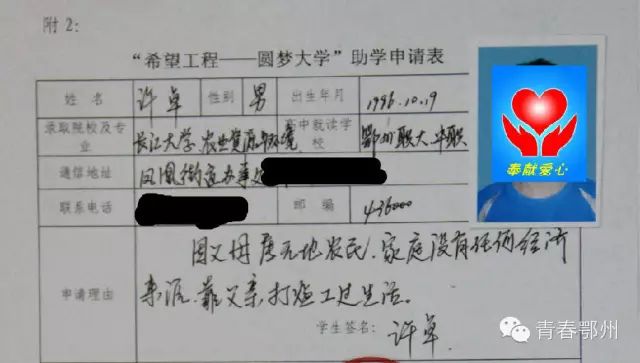 附2：
“希望工程——圆梦大学”助学申请表
姓 名 许卓 性别 男 出生年月 1996.10.19
录取院校及专业 长江大学 农业资源与环境 高中就读学校 鄂州职大 中职
通信地址 凤凰街道办事处
联系电话 邮 编 436000
申请理由 因父母属无地农民，家庭没有任何经济
来源，靠父亲打散工过生活。
学生签名： 许卓
奉献爱心
青春鄂州